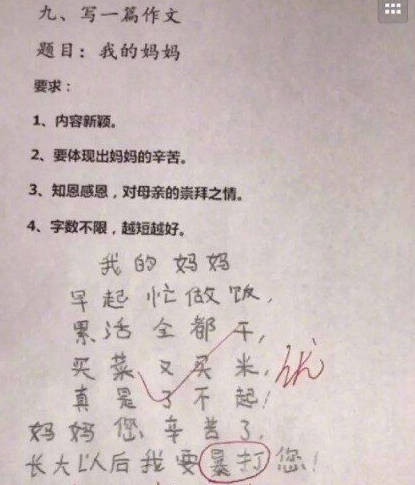 九、写一篇作文
题目：我的妈妈
要求：
1、内容新颖。
2、要体现出妈妈的辛苦。
3、知恩感恩，对母亲的崇拜之情。
4、字数不限，越短越好。
我的妈妈
早起忙做饭，
累活全都干，
买菜又买米，
优
真是了不起！
妈妈您辛苦了，
长大以后我要暴打您！